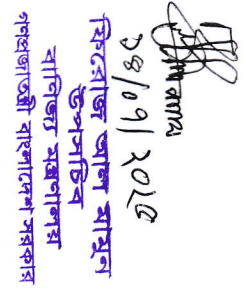 ফিরোজ আল মামুন
উপসচিব
বাণিজ্য মন্ত্রণালয়
গণপ্রজাতন্ত্রী বাংলাদেশ সরকার